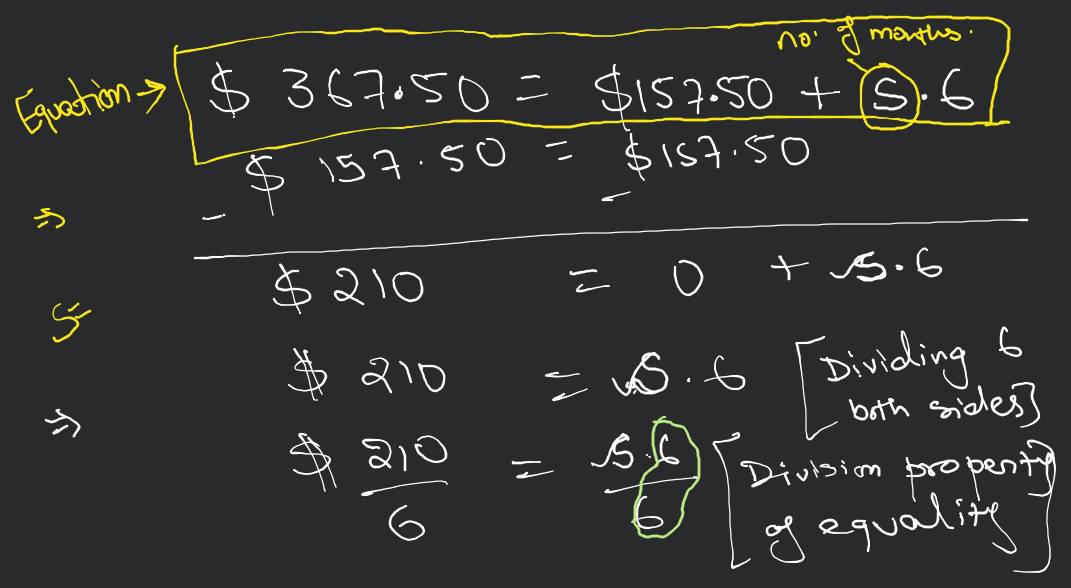 no. of months.
Equation → $ 367.50 = $157.50 + S.6
- $ 157.50 = - $157.50
⇒
$ 210 = 0 + S.6
S=
$ 210 = S.6 [Dividing 6
both sides]
⇒
$ 210 / 6 = S.6 / 6 [Division property
of equality]